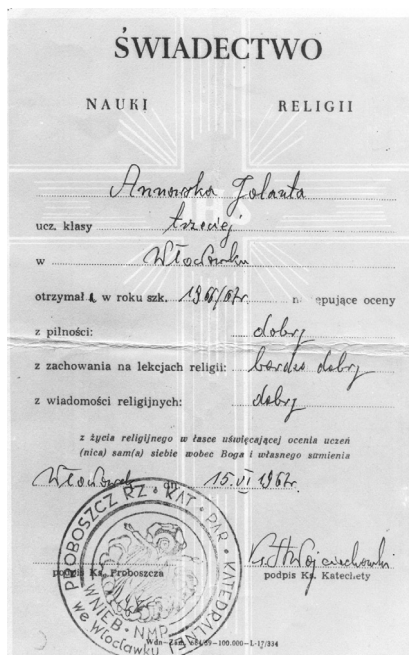 ŚWIADECTWO
NAUKI RELIGII
Annowska Jolanta
ucz. klasy trzeciej
w Włocławku
otrzymała w roku szk. 1966/67r. następujące oceny
z pilności: dobry
z zachowania na lekcjach religii: bardzo dobry
z wiadomości religijnych: dobry
z życia religijnego w łasce uświęcającej ocenia uczeń
(nica) sam(a) siebie wobec Boga i własnego sumienia
Włocławek dn. 15.VI 1967r.
PROBOSZCZ RZ. KAT. PAR. KATEDRALNEJ
WNIEB. NMP.
we Włocławku
Ks H Wojciechowski
podpis Ks. Proboszcza podpis Ks. Katechety
Wdn-Zam. 684/59-100.000-L-17/334